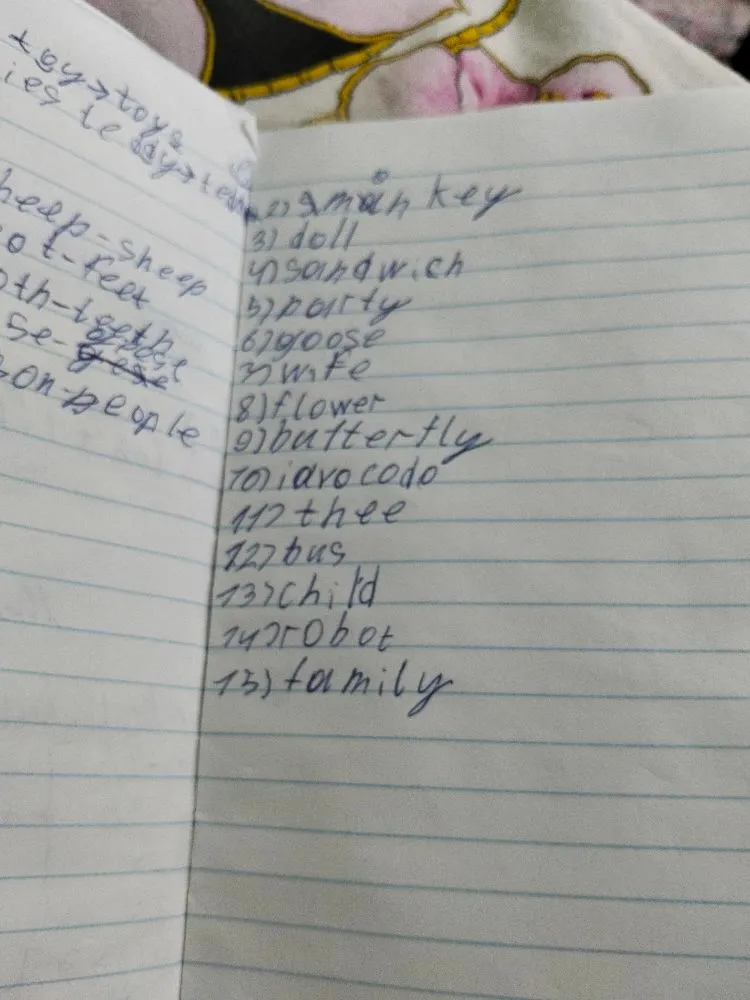 key>toys
ies te ddy>tedd
heep-sheep
ot-feet
oth-teeth
se-geese
son-people
2) main key
3) doll
4) sandwich
5) party
6) goose
7) wife
8) flower
9) butterfly
10) avocodo
11) thee
12) bus
13) child
14) robot
15) family